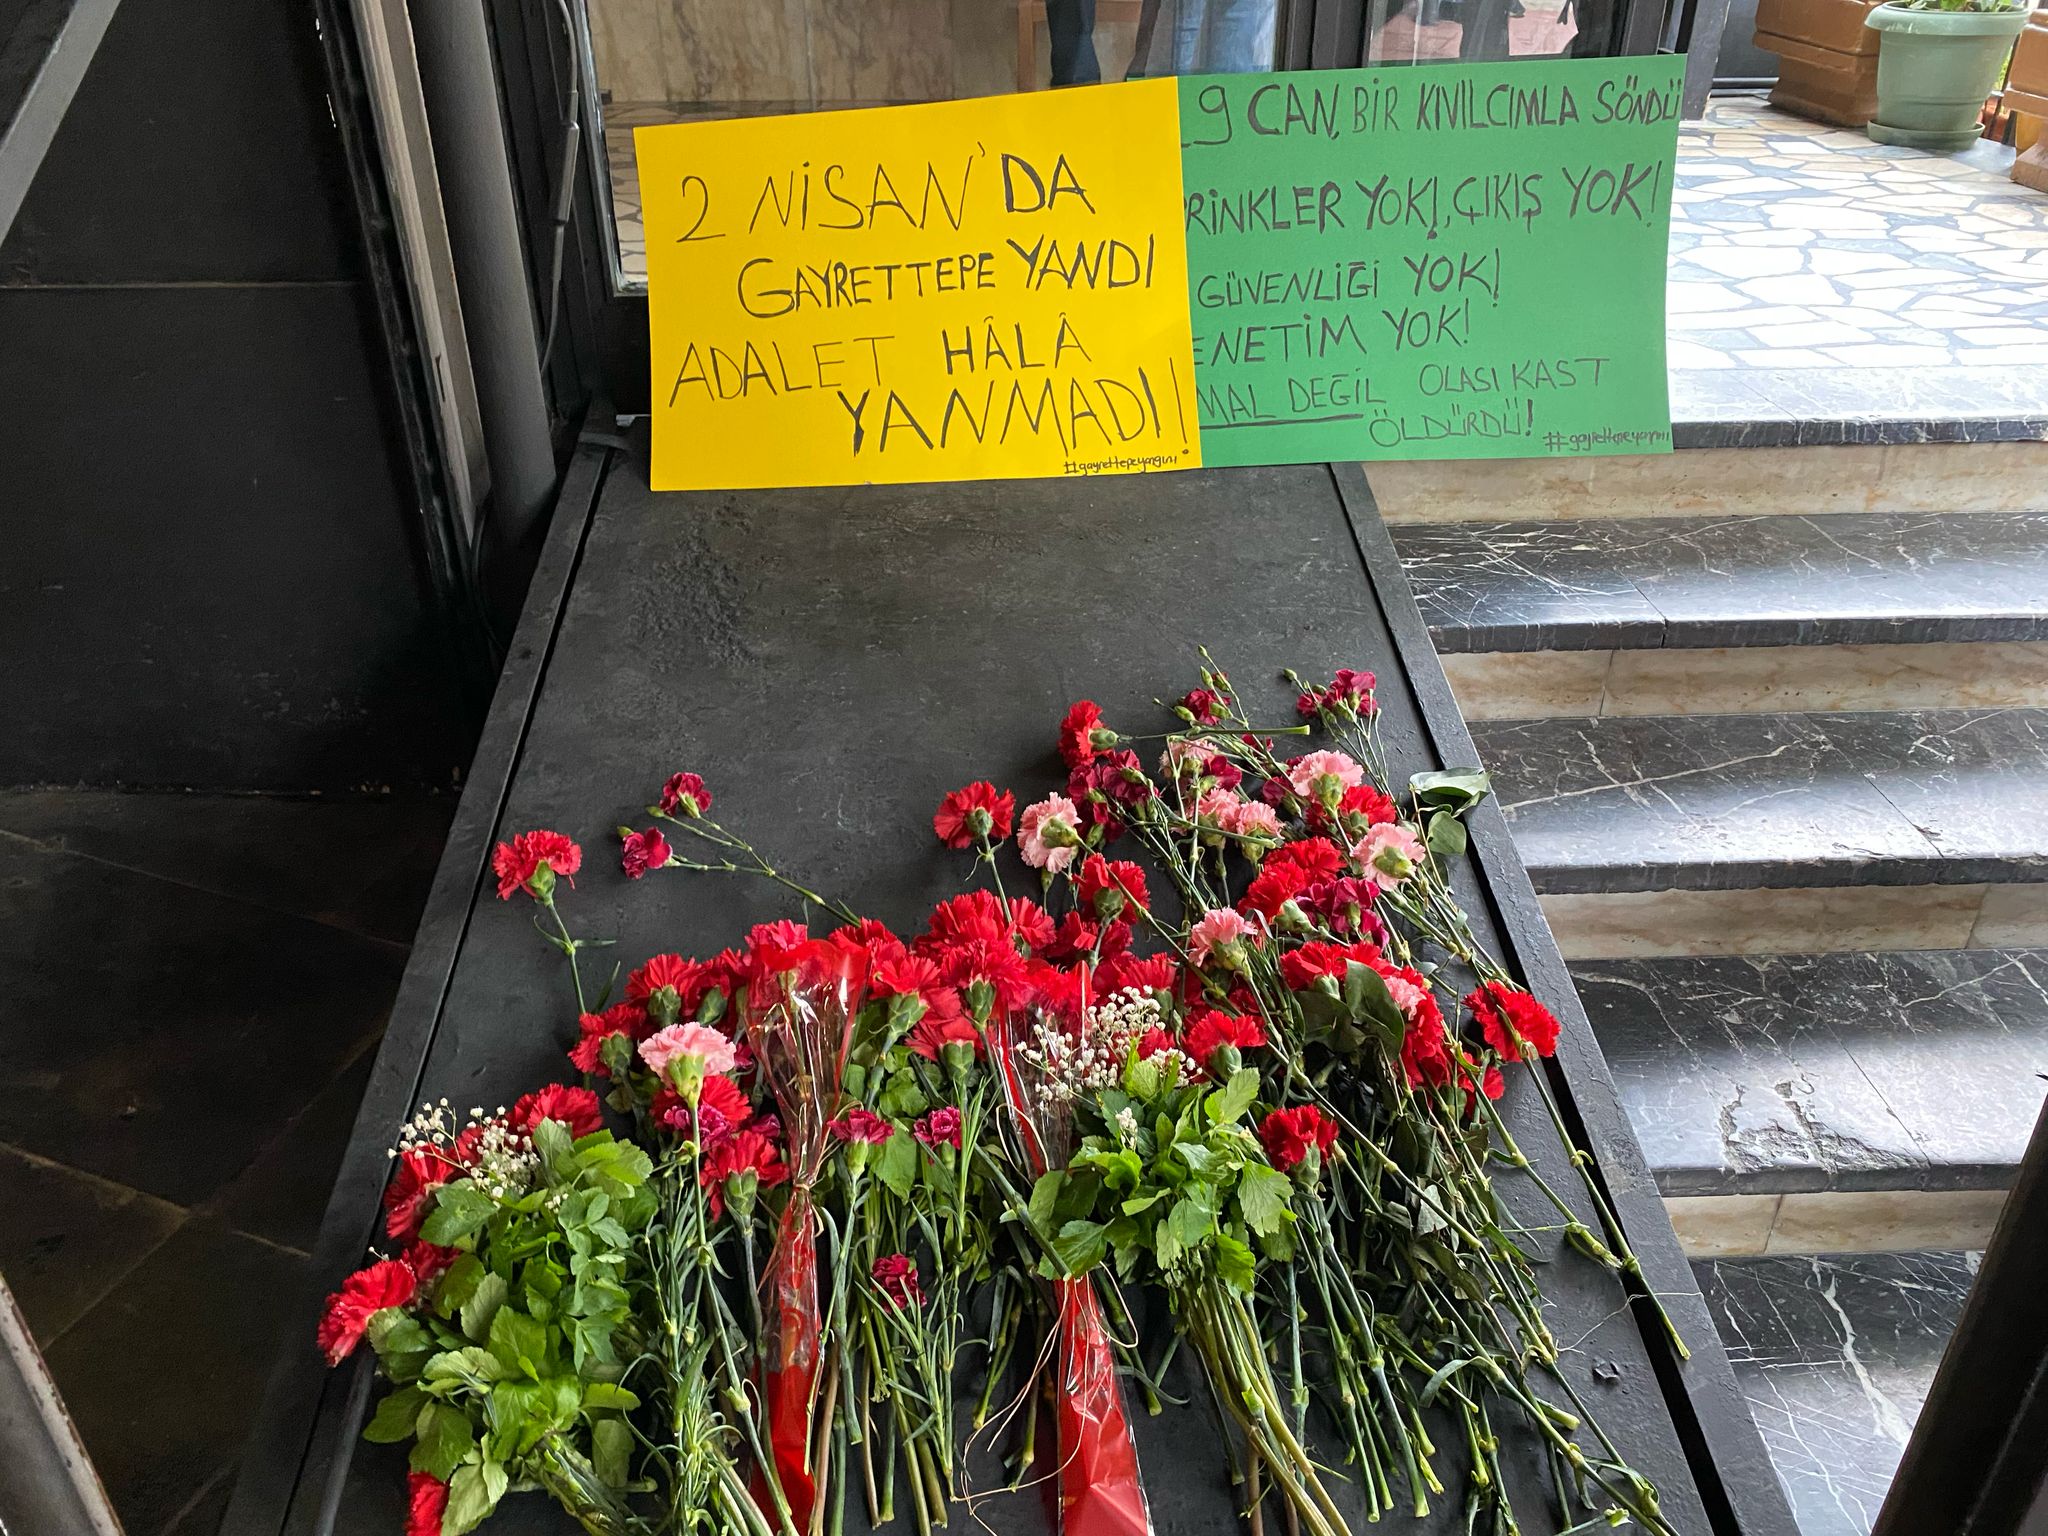 2 NİSAN'DA
GAYRETTEPE YANDI
ADALET HÂLÂ
YANMADI!
#gayrettepeyangını
9 CAN, BİR KIVILCIMLA SÖNDÜ
RİNKLER YOK!, ÇIKIŞ YOK!
GÜVENLİĞİ YOK!
ENETİM YOK!
MAL DEĞİL OLASI KAST
ÖLDÜRDÜ!
#gayrettepeyangını